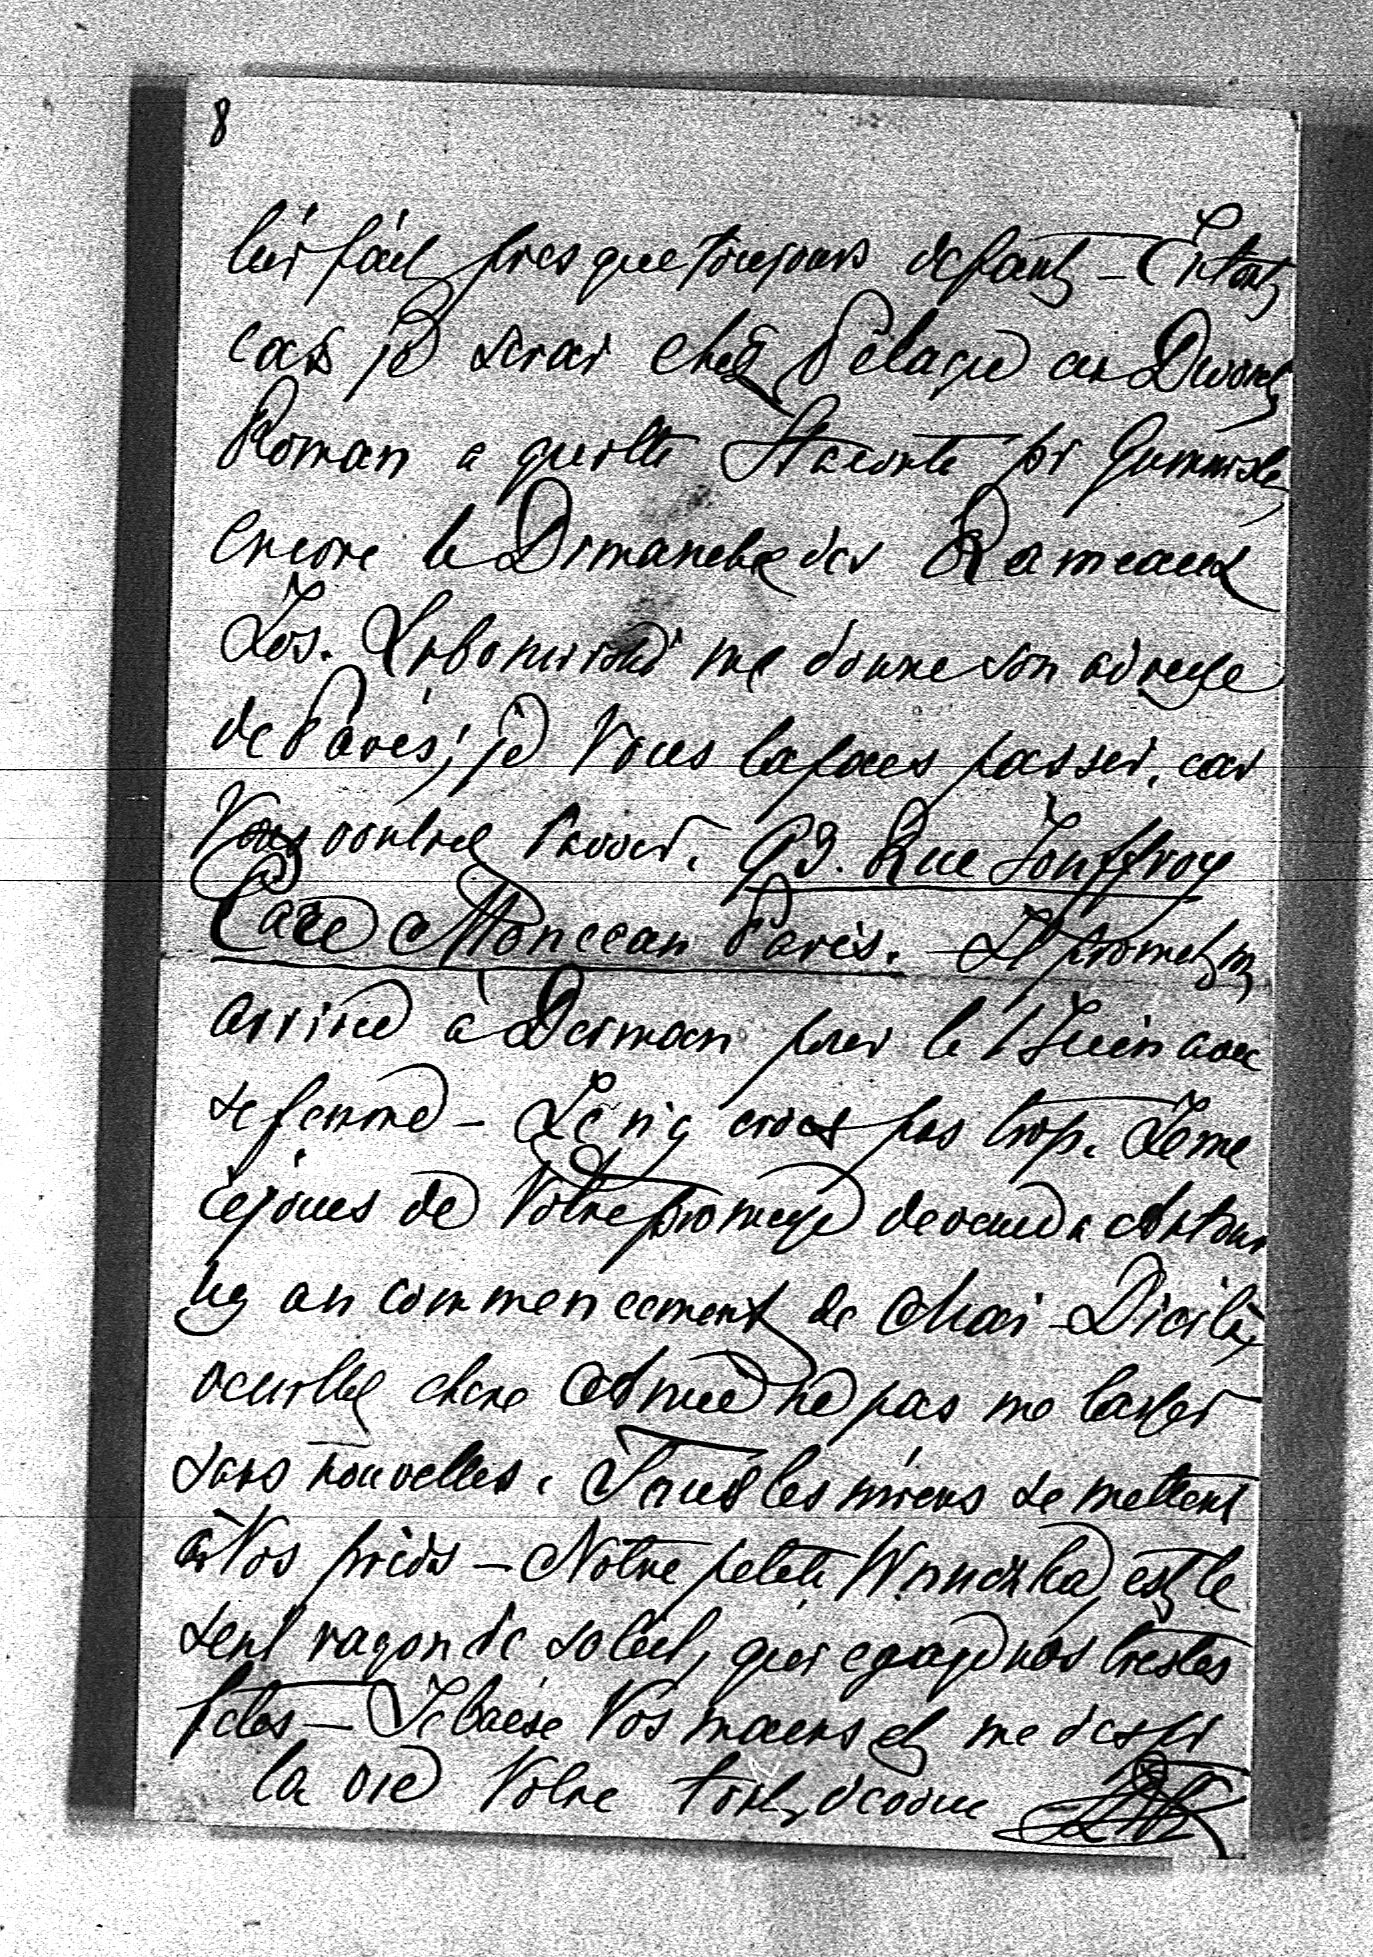 8
lui fait presque toujours defaut – En tout
cas je serai chez Pelagie au Dwor
Roman a quitté pr
encore le Dimanche des Rameaux
Jos. Lubomirski me donne son adresse
de Paris, je Vous la fais passer, car
Vous voulrez l'avoir. 93. Rue Jouffroy
Parc Monceau Paris. – Il promet m
arriver à Derman pour le 1 Juin avec
sa femme – Je n'y crois pas trop. Je me
rejouis de Votre promesse de venir a Anton
ny au commencement de Mai –
veuillez chere Amie ne pas me laisser
sans nouvelles. Tous les miens se mettent
à Vos pieds – Notre petite est le
seul rayon de soleil, qui egaye nos tristes
fetes – Je baise Vos mains et me dis pr
la vie Votre tout devoué